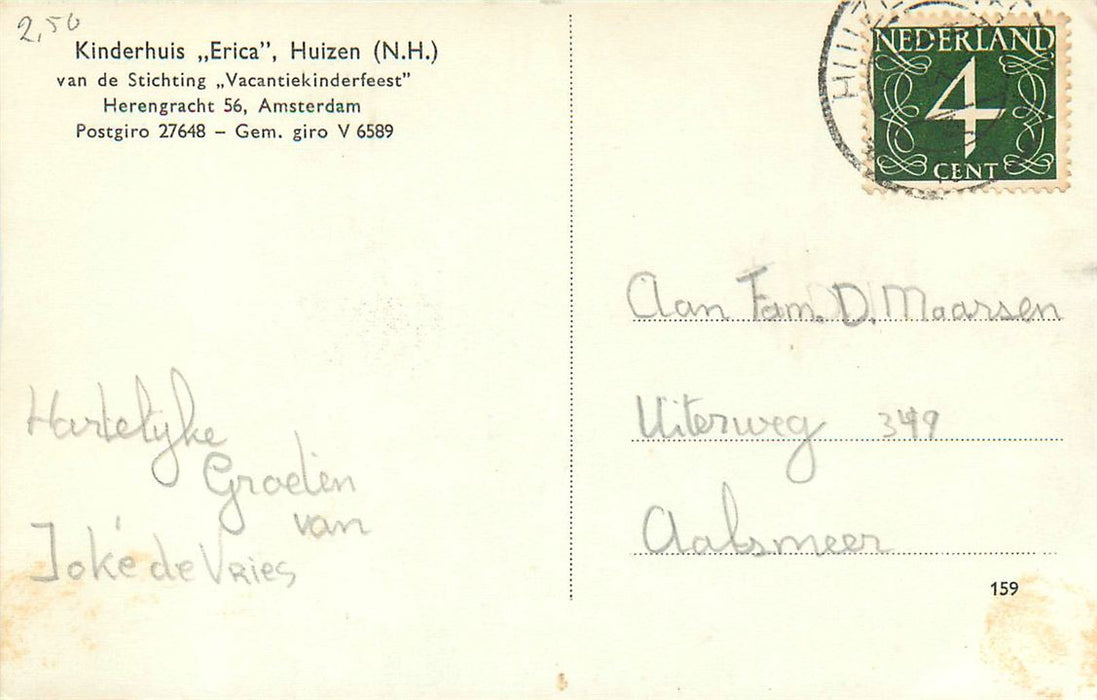 2,50
Kinderhuis „Erica”, Huizen (N.H.)
van de Stichting „Vacantiekinderfeest”
Herengracht 56, Amsterdam
Postgiro 27648 – Gem. giro V 6589
NEDERLAND
4
CENT
Hartelijke
Groeten
van
Joke de Vries
Aan Fam. D. Maarsen
Uiterweg 349
Aalsmeer
159